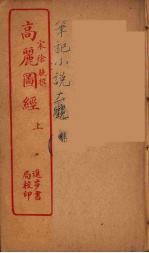 筆記小說
宋徐兢撰
高麗圖經 上
進步書
局校印